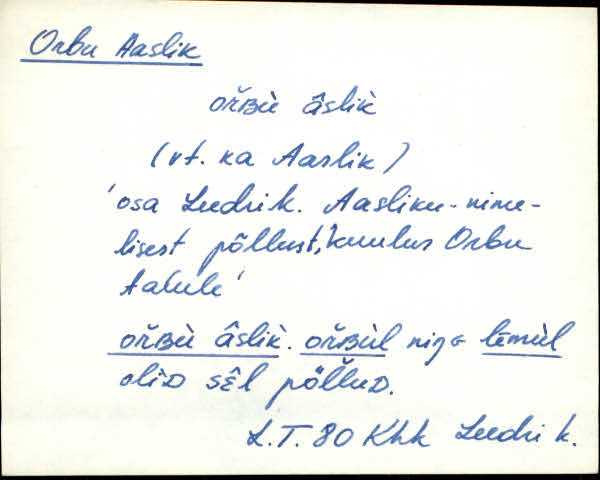 Orbu Aaslik
ořʙù âslik̀
(vt. ka Aaslik)
'osa Leedri k. Aasliku-nime-
lisest põllust, kuulus Orbu
talule'
ořʙù âslik̀. ořʙùl nig̀ lēmùl
oliᴅ sēl põĺluᴅ.
L.T. 80 Khk Leedri k.